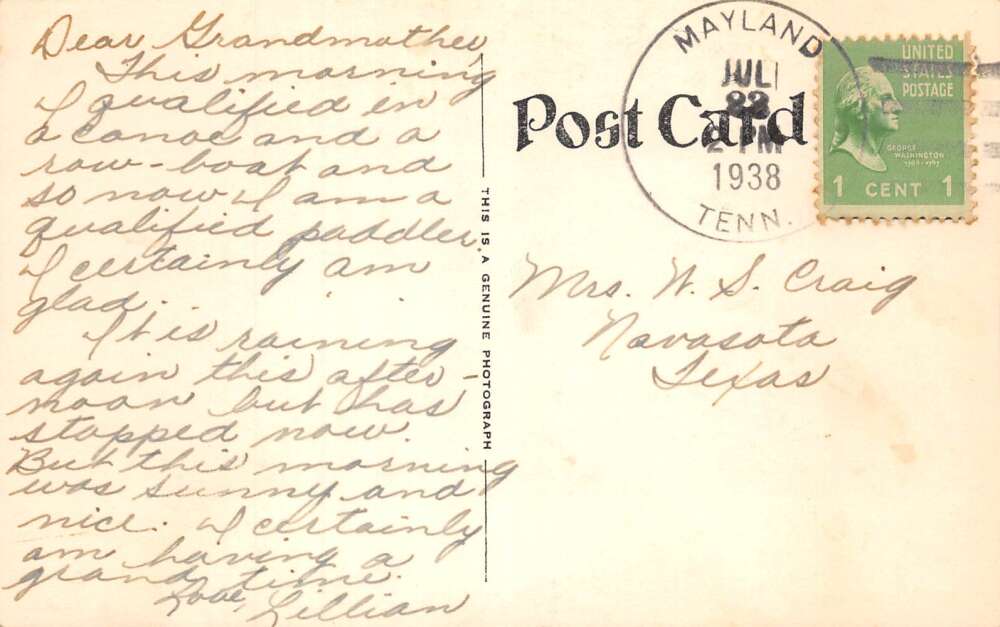 Dear Grandmother,
This morning
I qualified in
a canoe and a
row-boat and
so now I am a
qualified paddler.
I certainly am
glad.
It is raining
again this after-
noon but has
stopped now.
But this morning
was sunny and
nice. I certainly
am having a
grand time.
Love, Lillian
THIS IS A GENUINE PHOTOGRAPH
Post Card
MAYLAND
JUL
22
PM
1938
TENN.
UNITED
STATES
POSTAGE
GEORGE
WASHINGTON
1789-1797
1 CENT 1
Mrs. W. S. Craig
Navasota
Texas